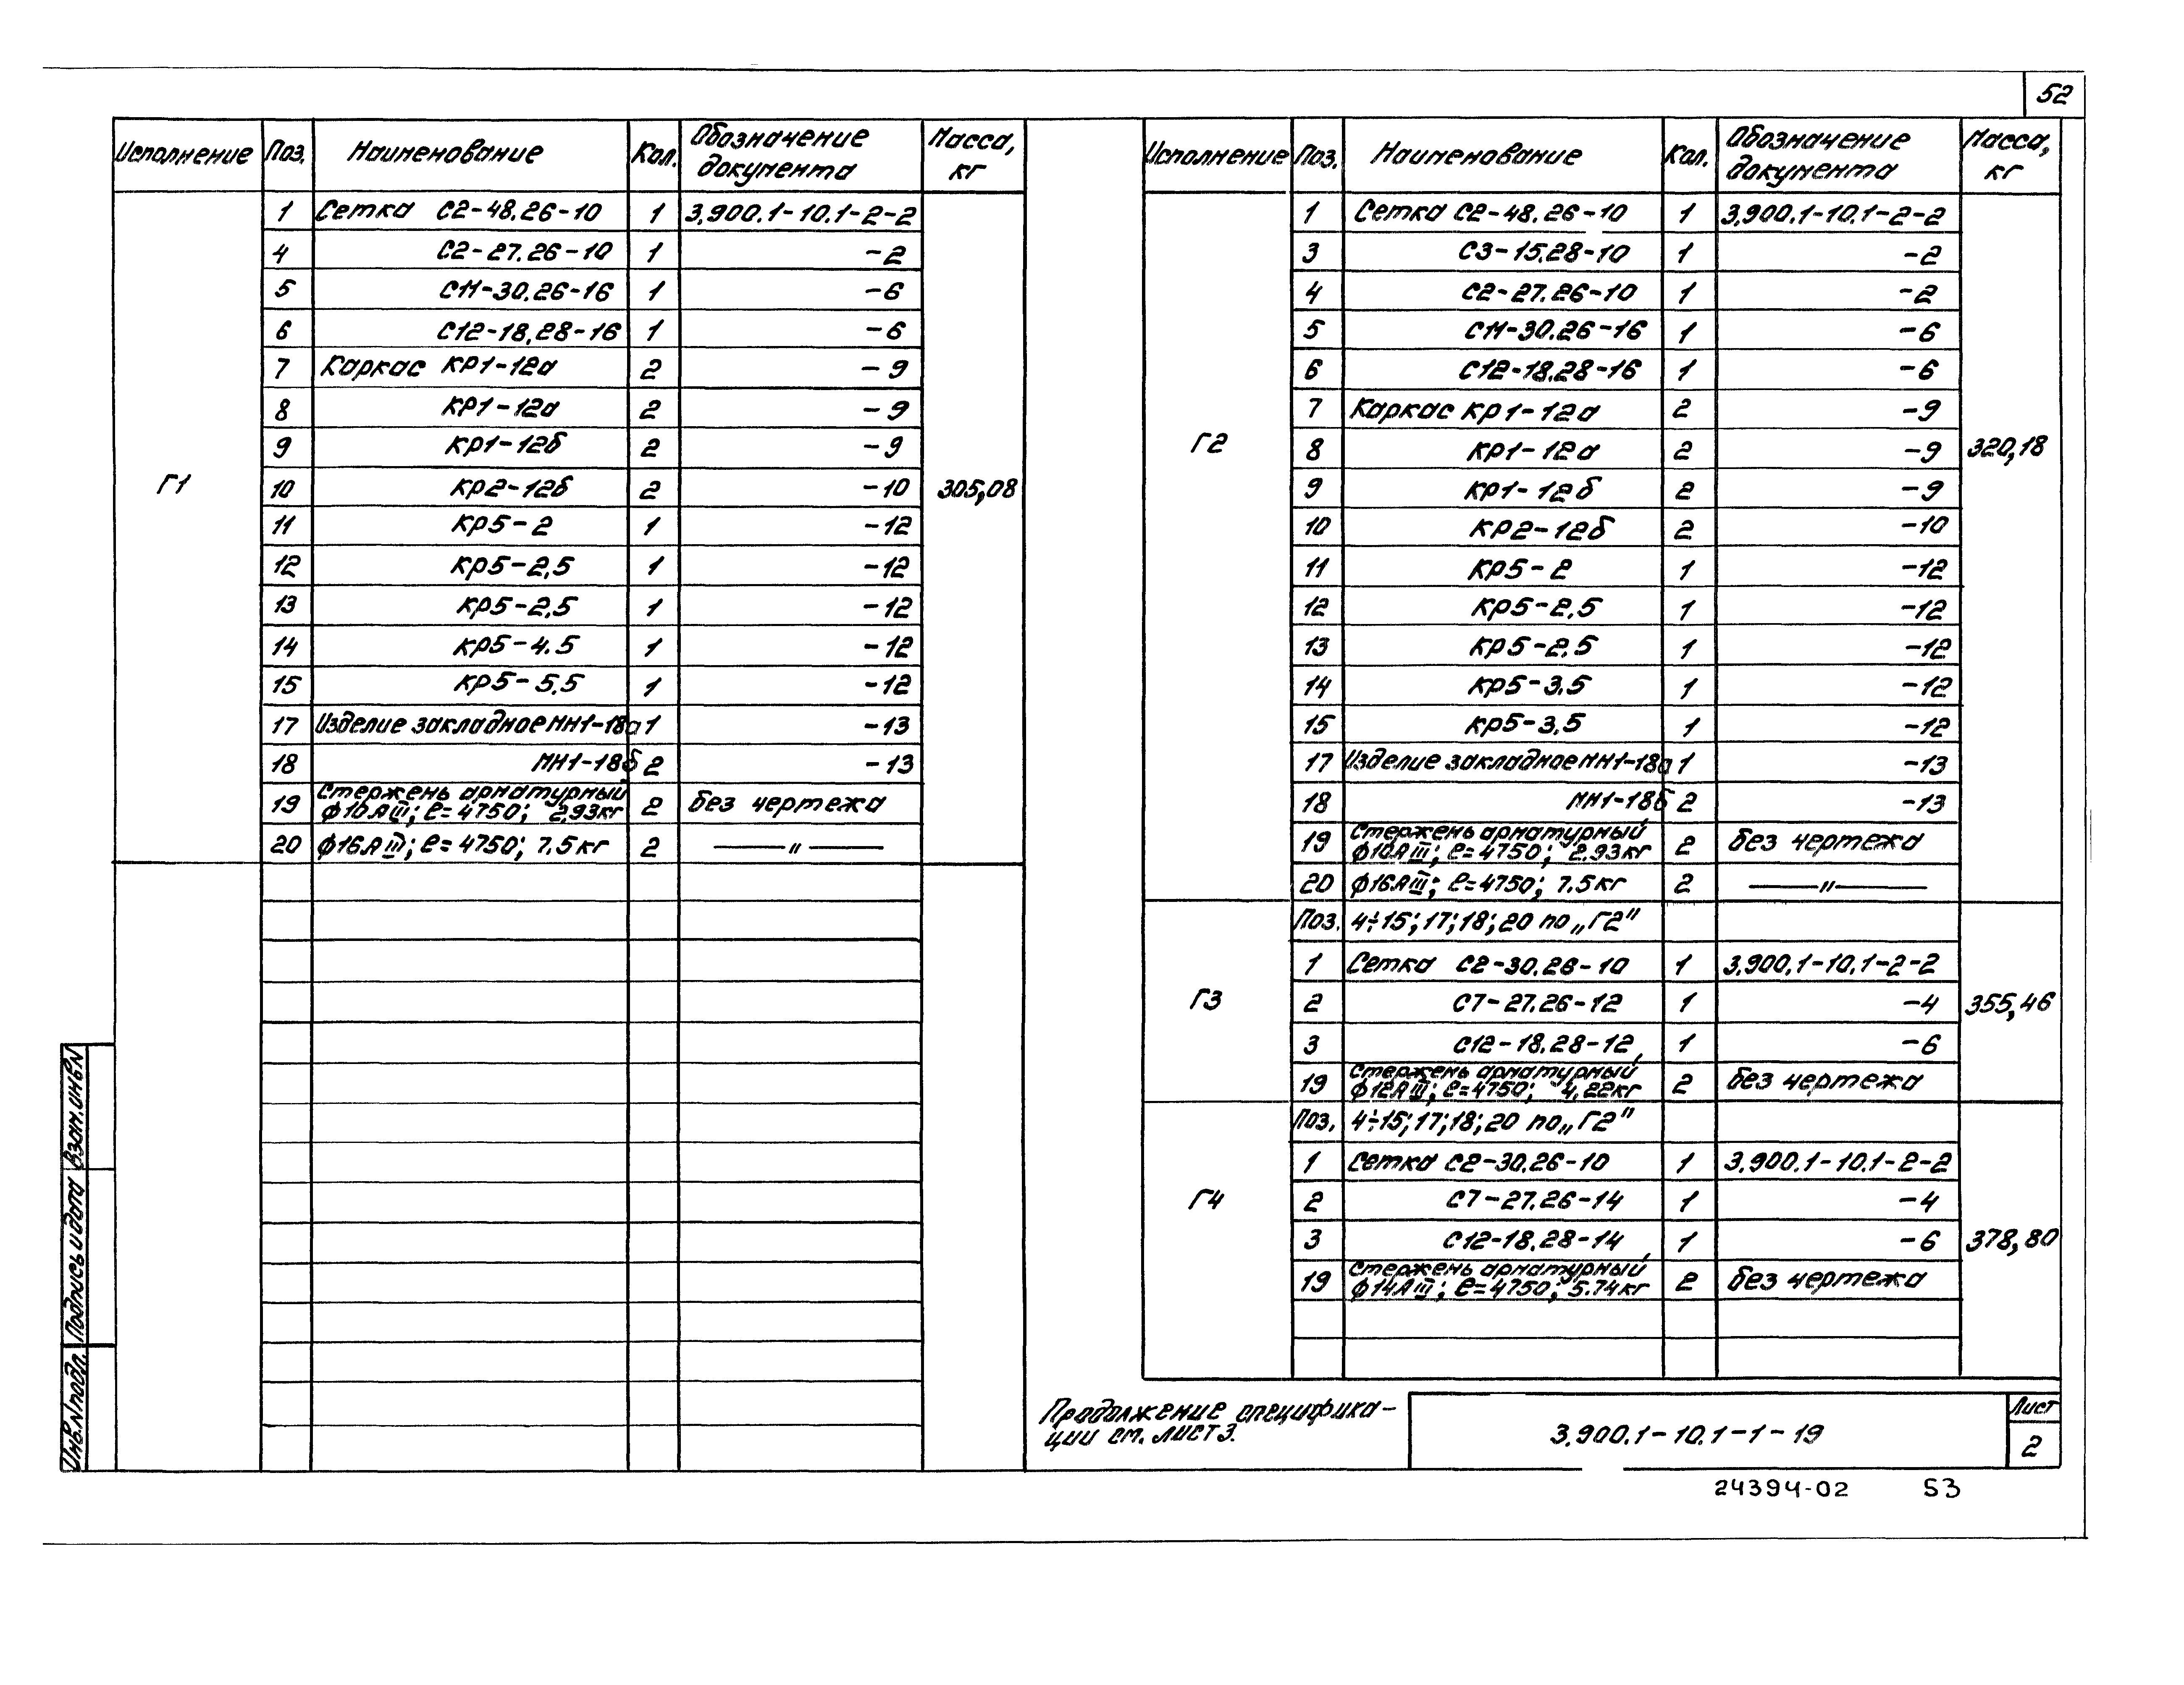 52
Исполнение Поз. Наименование Кол. Обозначение документа Масса, кг
Г1 305,08
1 Сетка С2-48.26-10 1 3.900.1-10.1-2-2
4 С2-27.26-10 1 -2
5 С11-30.26-16 1 -6
6 С12-18.28-16 1 -6
7 Каркас КР1-12а 2 -9
8 КР1-12а 2 -9
9 КР1-12б 2 -9
10 КР2-12б 2 -10
11 КР5-2 1 -12
12 КР5-2,5 1 -12
13 КР5-2,5 1 -12
14 КР5-4,5 1 -12
15 КР5-5,5 1 -12
17 Изделие закладное МН1-18а 1 -13
18 МН1-18б 2 -13
19 Стержень арматурный
ϕ10АIII; ℓ=4750; 2,93кг 2 без чертежа
20 ϕ16АIII; ℓ=4750; 7,5кг 2 — " —
Исполнение Поз. Наименование Кол. Обозначение документа Масса, кг
Г2 320,18
1 Сетка С2-48.26-10 1 3.900.1-10.1-2-2
3 С3-15.28-10 1 -2
4 С2-27.26-10 1 -2
5 С11-30.26-16 1 -6
6 С12-18.28-16 1 -6
7 Каркас КР1-12а 2 -9
8 КР1-12а 2 -9
9 КР1-12б 2 -9
10 КР2-12б 2 -10
11 КР5-2 1 -12
12 КР5-2,5 1 -12
13 КР5-2,5 1 -12
14 КР5-3,5 1 -12
15 КР5-3,5 1 -12
17 Изделие закладное МН1-18а 1 -13
18 МН1-18б 2 -13
19 Стержень арматурный
ϕ10АIII; ℓ=4750; 2,93кг 2 без чертежа
20 ϕ16АIII; ℓ=4750; 7,5кг 2 — " —
Г3 355,46
Поз. 4÷15; 17; 18; 20 по „Г2"
1 Сетка С2-30.26-10 1 3.900.1-10.1-2-2
2 С7-27.26-12 1 -4
3 С12-18.28-12 1 -6
19 Стержень арматурный
ϕ12АIII; ℓ=4750; 4,22кг 2 без чертежа
Г4 378,80
Поз. 4÷15; 17; 18; 20 по „Г2"
1 Сетка С2-30.26-10 1 3.900.1-10.1-2-2
2 С7-27.26-14 1 -4
3 С12-18.28-14 1 -6
19 Стержень арматурный
ϕ14АIII; ℓ=4750; 5.74кг 2 без чертежа
Продолжение специфика-
ции см. лист 3.
3.900.1-10.1-1-19
Лист
2
24394-02 53
Взам.инв.N
Подпись и дата
Инв.N подл.